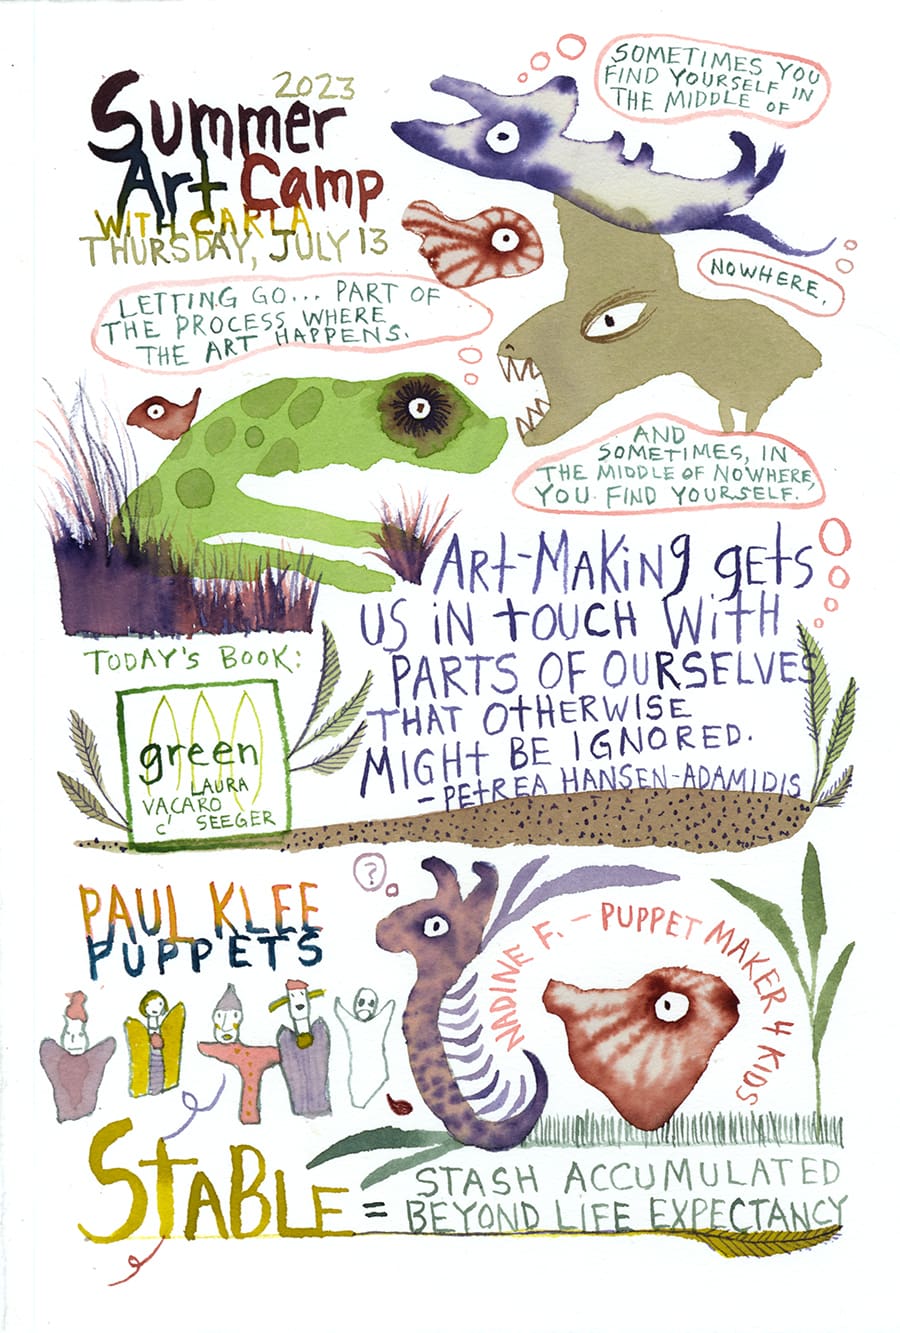 2023
Summer
Art Camp
WITH CARLA
THURSDAY, JULY 13
SOMETIMES YOU
FIND YOURSELF IN
THE MIDDLE OF
NOWHERE,
AND
SOMETIMES, IN
THE MIDDLE OF NOWHERE,
YOU FIND YOURSELF.
LETTING GO... PART OF
THE PROCESS WHERE
THE ART HAPPENS.
Art-Making gets
US IN TOUCH WITH
PARTS OF OURSELVES
THAT OTHERWISE
MIGHT BE IGNORED.
-PETREA HANSEN-ADAMIDIS
TODAY'S BOOK:
green
LAURA
VACARO
SEEGER
PAUL KLEE
PUPPETS
?
NADINE F. - PUPPET MAKER 4 KIDS
STABLE = STASH ACCUMULATED
BEYOND LIFE EXPECTANCY